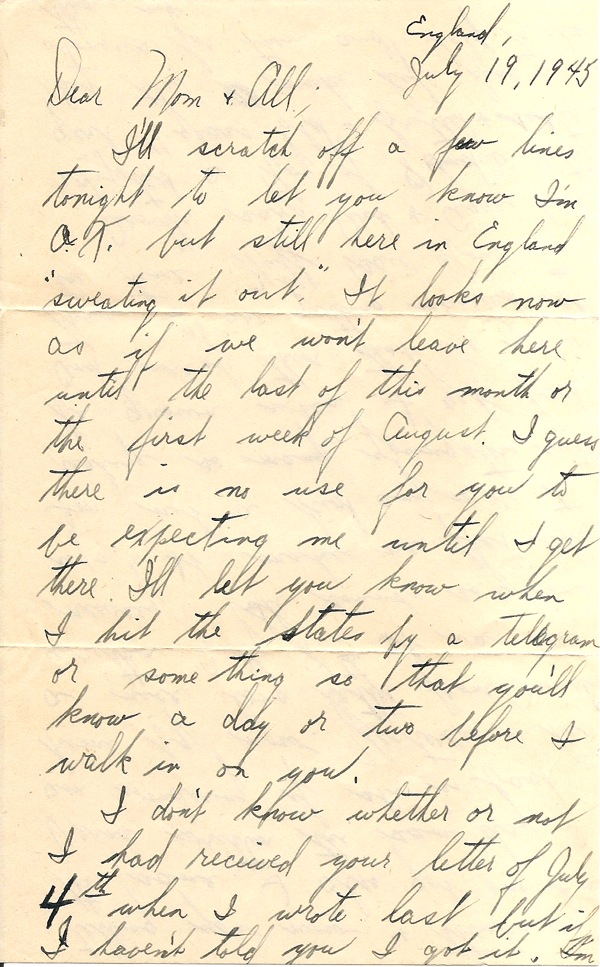 England,
July 19, 1945
Dear Mom + All;
I'll scratch off a few lines
tonight to let you know I'm
O.K. but still here in England
"sweating it out." It looks now
as if we won't leave here
until the last of this month or
the first week of August. I guess
there is no use for you to
be expecting me until I get
there. I'll let you know when
I hit the States by a telegram
or something so that you'll
know a day or two before I
walk in on you.
I don't know whether or not
I had received your letter of July
4th when I wrote last but if
I haven't told you I got it. I'm